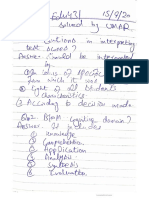 Edu431 15/9/20
Solved by UMAR
cautions in interpreting
test scores?
Answer: Should be interpreted
by
① In terms of specific
from which it was
② light of all students
characteristics
③ According to decision made
Qb2 Bloom cognitive domain?
Answer.
① knowledge
② Comprehension
③ Application
④ Analysis
⑤ Synthesis
⑥ Evaluation